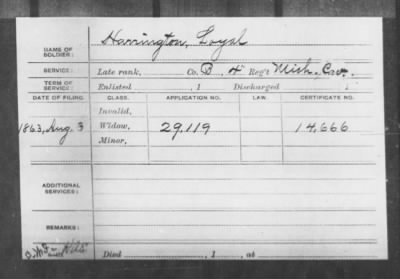 NAME OF SOLDIER: Harrington, Loyal
SERVICE: Late rank, Co. D, 4" Reg't Mich. Cav.
TERM OF SERVICE: Enlisted , 1 Discharged , 1
DATE OF FILING. CLASS. APPLICATION NO. LAW. CERTIFICATE NO.
Invalid,
1863, Aug. 3 Widow, 29,119 14,666
Minor,
ADDITIONAL SERVICES:
REMARKS:
Died , 1 , at